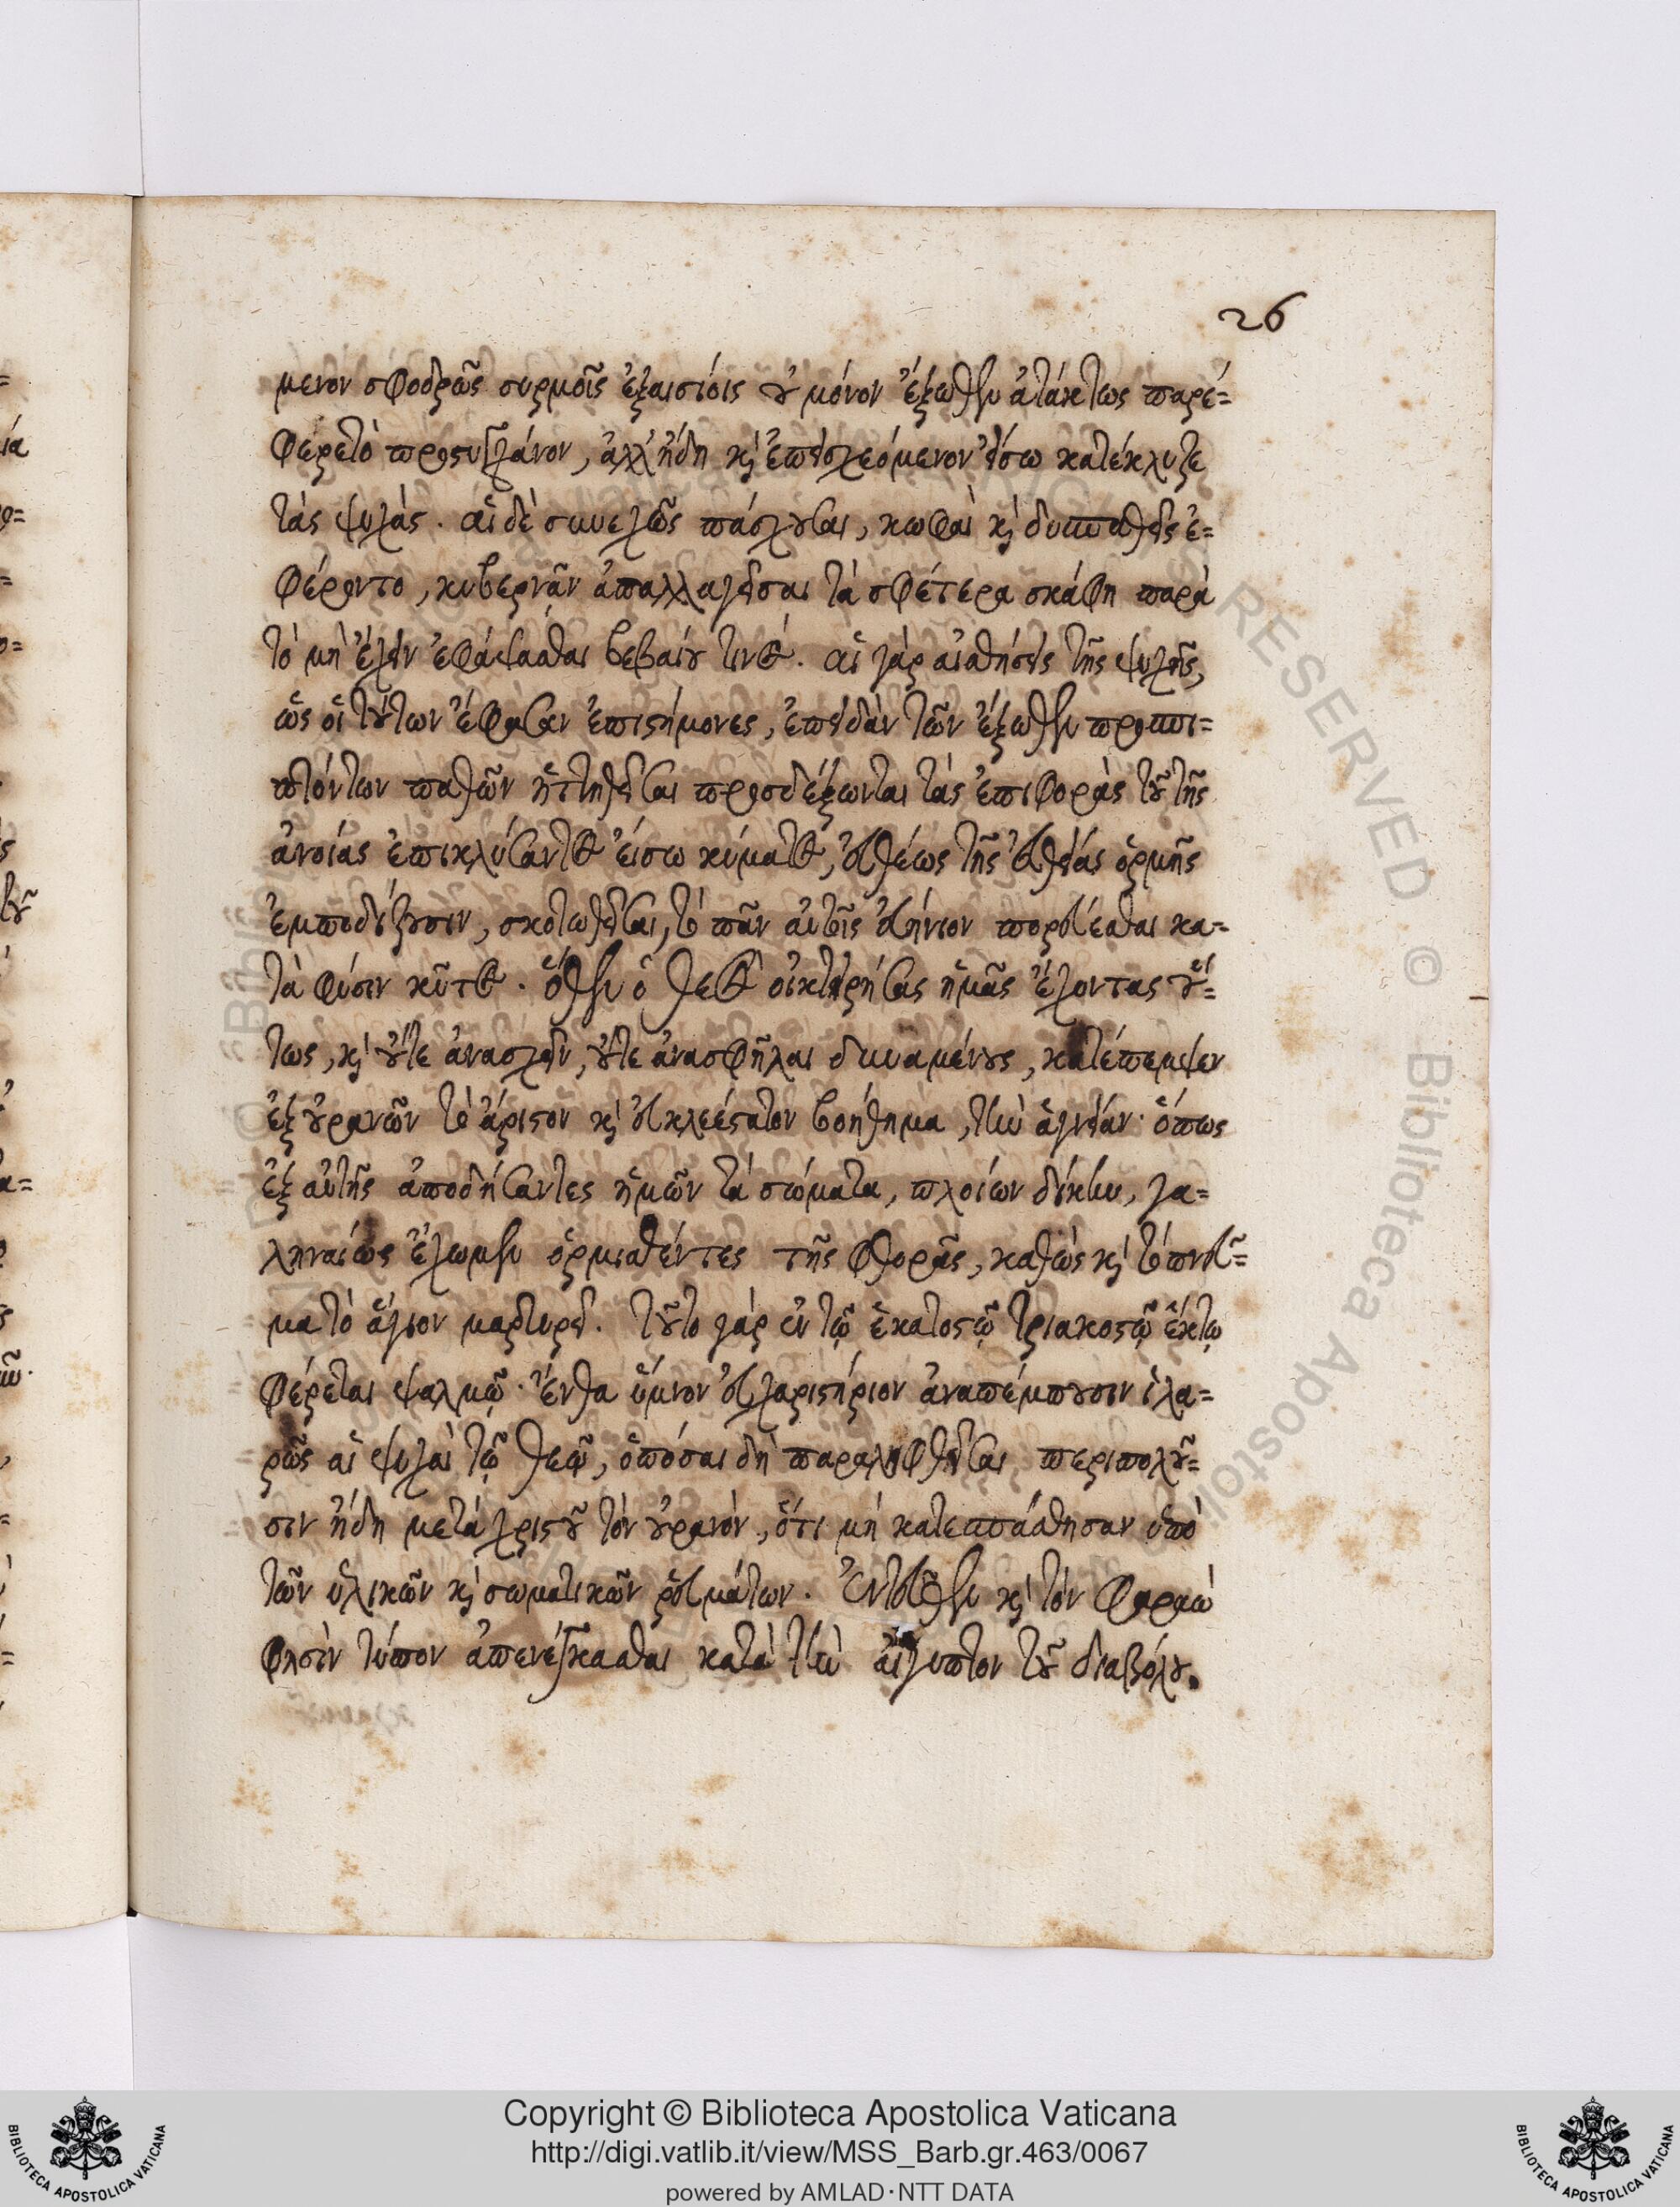 26
μενον σφοδρῶς συρμοῖς ἐξαισίοις οὐ μόνον ἔξωθεν ἀτάκτως παρέ=
φέρετο προστυγχάνον, ἀλλ' ἤδη καὶ ἐπεισχεόμενον εἴσω κατέκλυζε
τὰς ψυχάς. αἱ δὲ συνεχῶς πάσχουσαι, κωφαὶ καὶ δυσπαθεῖς ἐ=
φέροντο, κυβερνᾶν ἀπαλλαγεῖσαι τὰ σφέτερα σκάφη παρὰ
τὸ μὴ ἔχειν ἐφάψασθαι βεβαίου τινός. αἱ γὰρ αἰσθήσεις τῆς ψυχῆς,
ὥς οἱ τούτων ἔφασαν ἐπιστήμονες, ἐπειδὰν τῶν ἔξωθεν προσπι=
πτόντων παθῶν ἡττηθεῖσαι προσδέξωνται τὰς ἐπιφορὰς τοῦ τῆς
ἀνοίας ἐπικλύσαντος εἴσω κύματος, εὐθέως τῆς εὐθείας ὁρμῆς
ἐμποδίζουσιν, σκοτωθεῖσαι, τὸ πᾶν αὐταῖς εὐήνιον πορεύεσθαι κα=
τὰ φύσιν κῦτος. ὅθεν ὁ θεὸς οἰκτειρήσας ἡμᾶς ἔχοντας οὕ=
τως, καὶ οὔτε ἀνασχεῖν, οὔτε ἀνασφῆλαι δυναμένους, κατέπεμψεν
ἐξ οὐρανῶν τὸ ἄριστον καὶ εὐκλεέστατον βοήθημα, τὴν ἁγνείαν· ὅπως
ἐξ αὐτῆς ἀποδήσαντες ἡμῶν τὰ σώματα, πλοίων δίκην, γα=
ληναίως ἔχωμεν ὁρμισθέντες τῆς φθορᾶς, καθὼς καὶ τὸ πνεῦ=
μα τὸ ἅγιον μαρτυρεῖ. τοῦτο γὰρ ἐν τῷ ἑκατοστῷ τριακοστῷ ἕκτῳ
φέρεται ψαλμῷ· ἔνθα ὕμνον εὐχαριστήριον ἀναπέμπουσιν ἱλα=
ρῶς αἱ ψυχαὶ τῷ θεῷ, ὁπόσαι δὴ παραληφθεῖσαι περιπολοῦ=
σιν ἤδη μετὰ χριστοῦ τὸν οὐρανόν, ὅτι μὴ κατεσπάσθησαν ὑπὸ
τῶν ὑλικῶν καὶ σωματικῶν ῥευμάτων. ἐντεῦθεν καὶ τὸν Φαραὼ
φασὶν τύπον ἀπενέγκασθαι κατὰ τὴν αἴγυπτον τοῦ διαβόλου.
Copyright © Biblioteca Apostolica Vaticana
http://digi.vatlib.it/view/MSS_Barb.gr.463/0067
powered by AMLAD·NTT DATA
BIBLIOTECA APOSTOLICA VATICANA
BIBLIOTECA APOSTOLICA VATICANA